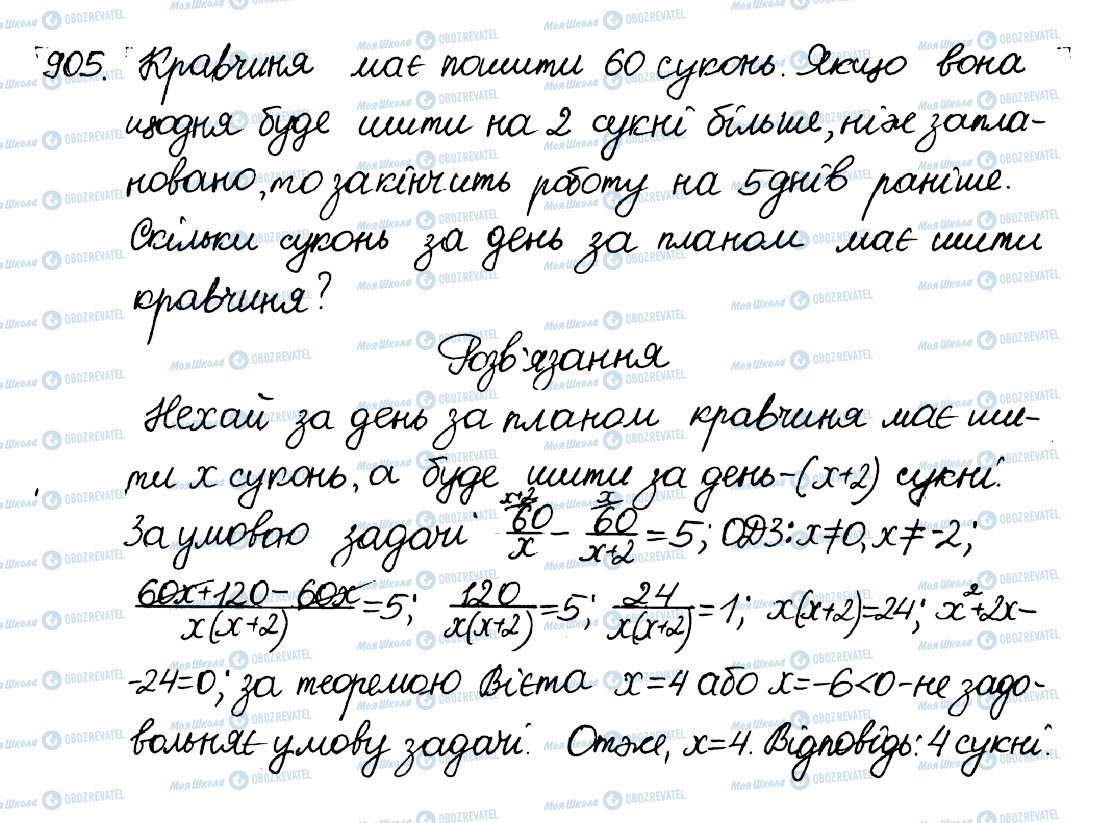 905. Кравчиня має пошити 60 суконь. Якщо вона
щодня буде шити на 2 сукні більше, ніж запла-
новано, то закінчить роботу на 5 днів раніше.
Скільки суконь за день за планом має шити
кравчиня?
Розв'язання
Нехай за день за планом кравчиня має ши-
ти x суконь, а буде шити за день - (x+2) сукні.
За умовою задачі x+2/ 60/x - x/ 60/(x+2) = 5; ОДЗ: x≠0, x≠-2;
(60x+120-60x)/(x(x+2)) = 5; 120/(x(x+2)) = 5; 24/(x(x+2)) = 1; x(x+2)=24; x²+2x-
-24=0; за теоремою Вієта x=4 або x=-6<0 - не задо-
вольняє умову задачі. Отже, x=4. Відповідь: 4 сукні.
Моя Школа OBOZREVATEL